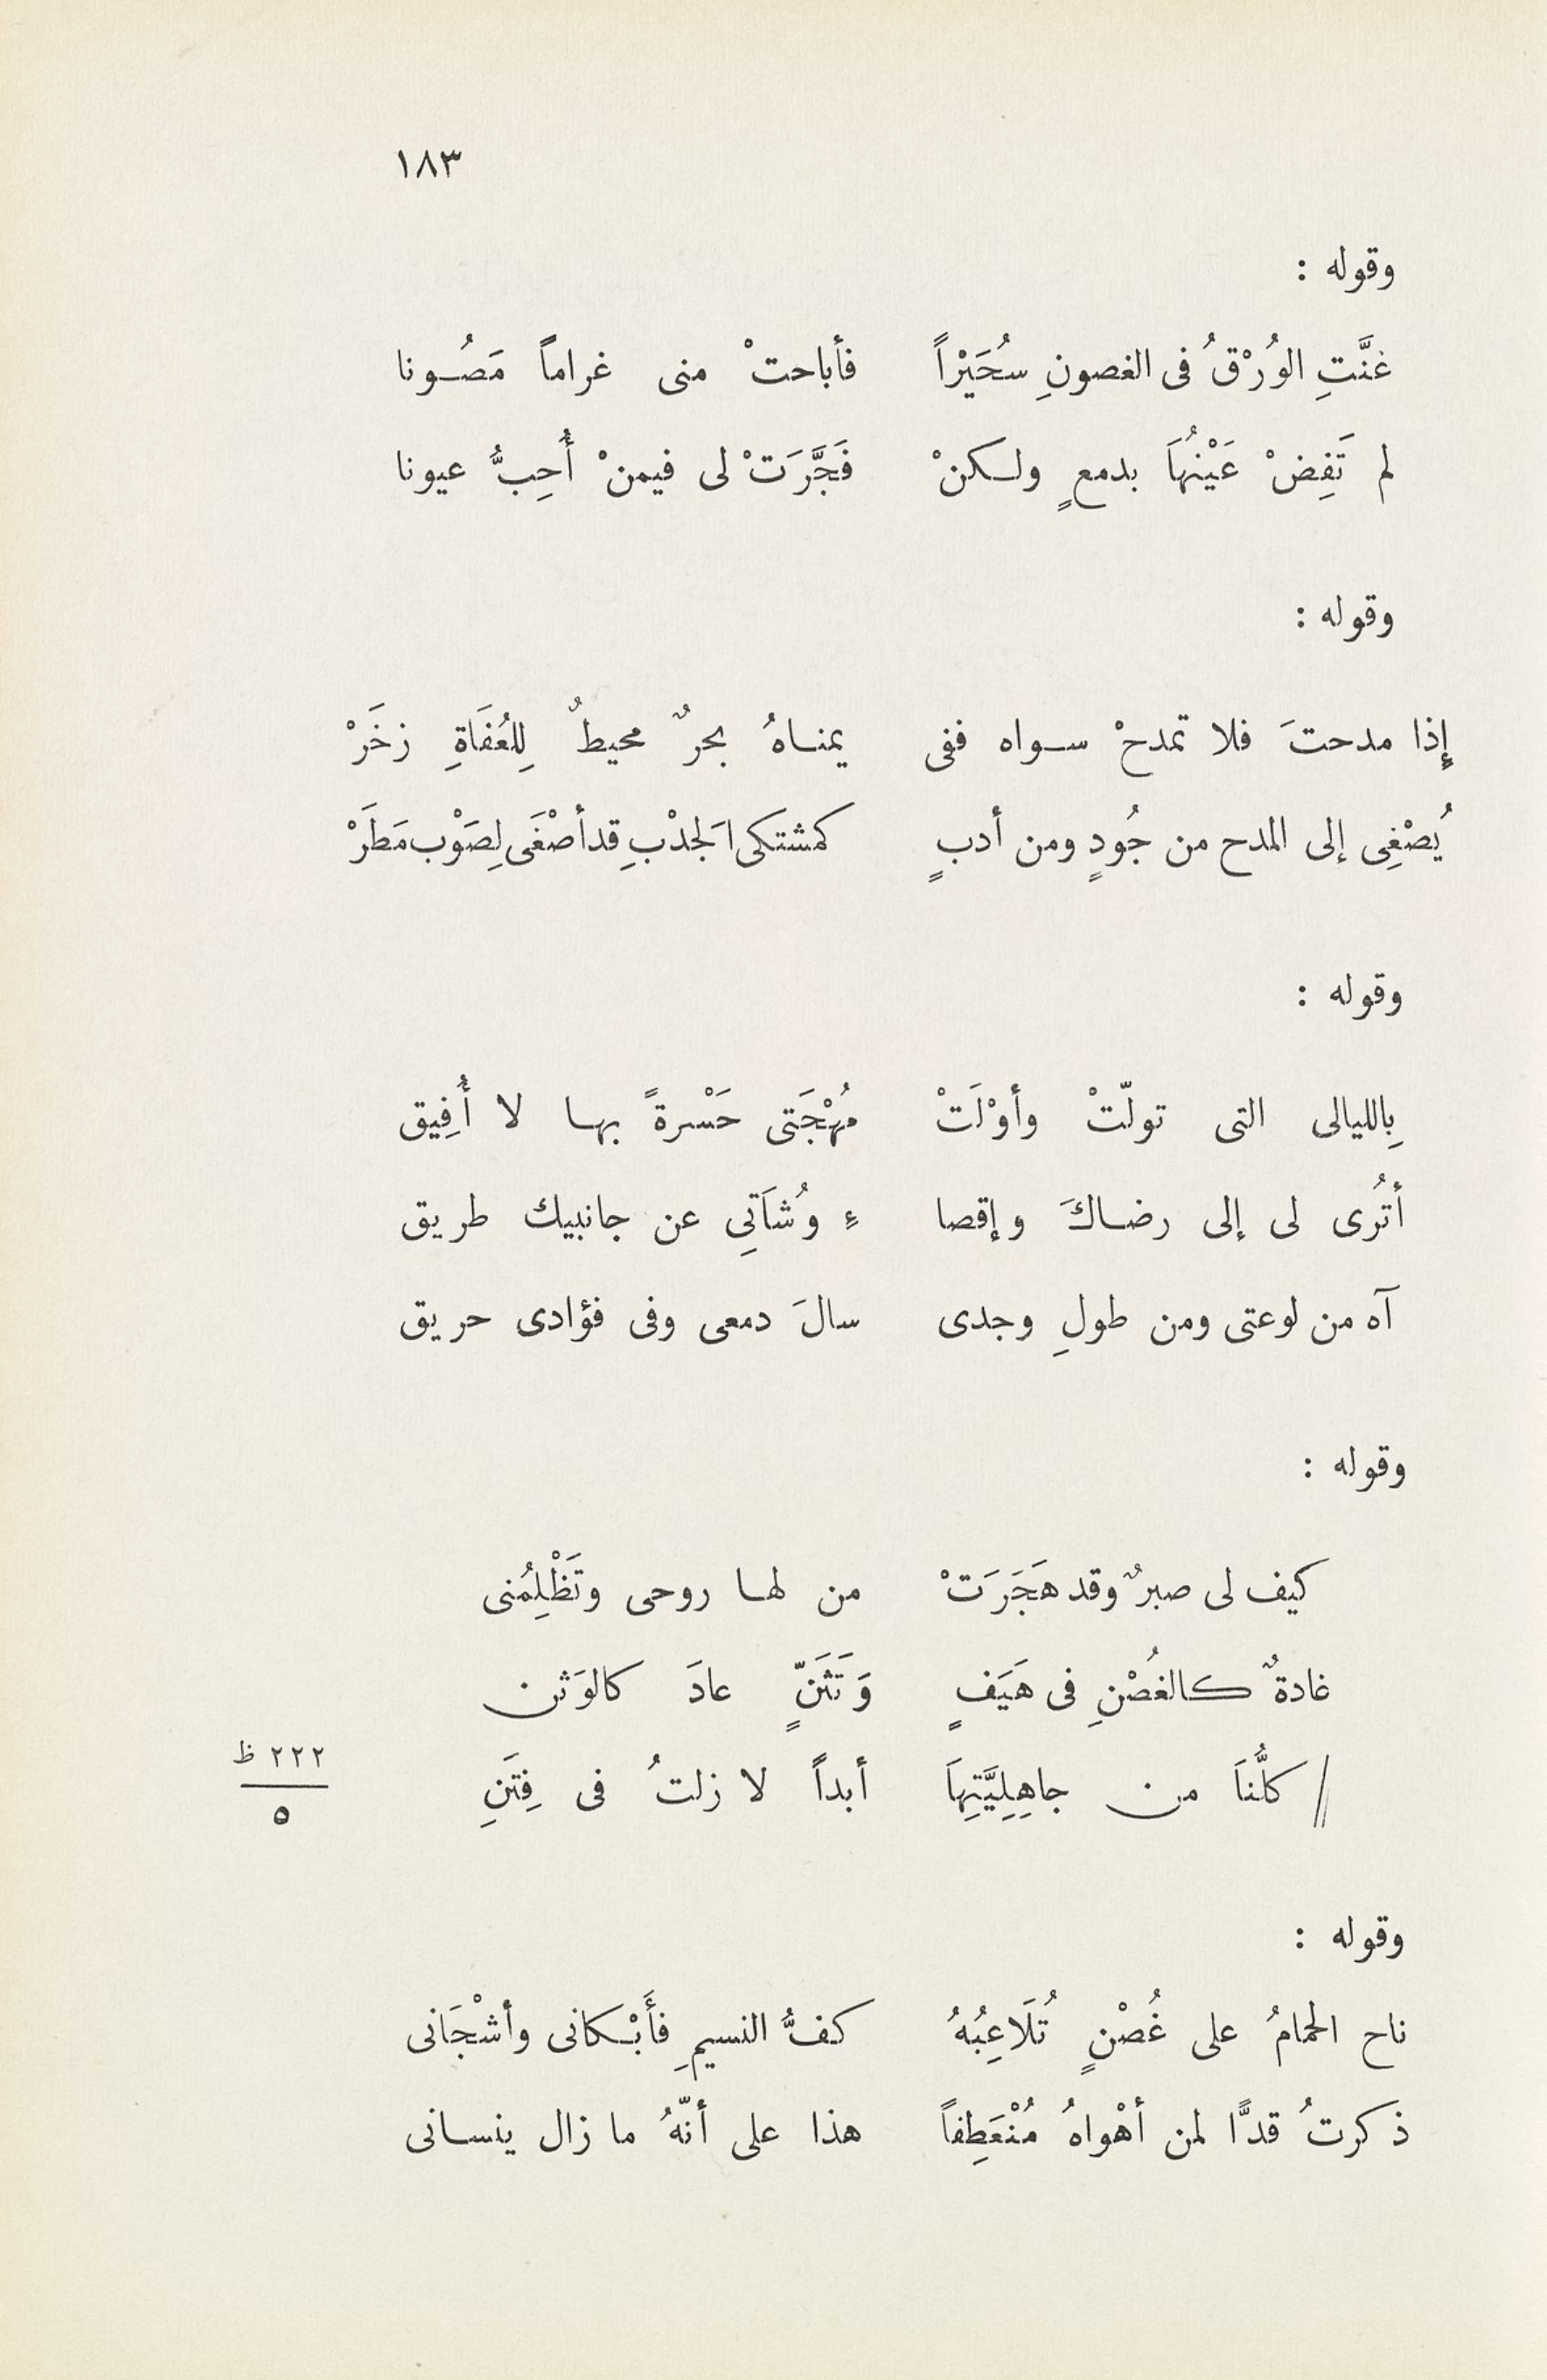 ١٨٣
وقوله :
غنَّتِ الوُرْقُ فى الغصونِ سُحَيْراً فأباحتْ منى غراماً مَصُونا
لم تَفِضْ عَيْنُهَا بدمعٍ ولكنْ فَجَّرَتْ لى فيمنْ أُحِبُّ عيونا
وقوله :
إذا مدحتَ فلا تمدحْ سواه ففى يمناهُ بحرٌ محيطٌ لِلعُفَاةِ زخَرْ
يُصْغِى إلى المدح من جُودٍ ومن أدبٍ كمشتكى الَجدْبِ قد أصْغَى لِصَوْب مَطَرْ
وقوله :
بِالليالى التى تولّتْ وأوْلَتْ مُهْجَتى حَسْرةً بها لا أُفِيق
أتُرى لى إلى رضاكَ وإقصا ءِ وُشَاتِي عن جانبيك طريق
آه من لوعتى ومن طولِ وجدى سالَ دمعى وفى فؤادى حريق
وقوله :
كيف لى صبرٌ وقد هَجَرَتْ من لها روحى وتَظْلِمُنى
غادةٌ كالغُصْنِ فى هَيَفٍ وَتَثَنٍّ عادَ كالوَثن
// كلُّنَا من جاهِلِيَّتِهَا أبداً لا زلتُ فى فِتَنِ
٢٢٢ ظ
٥
وقوله :
ناح الحمامُ على غُصْنٍ تُلَاعِبُهُ كفُّ النسيمِ فأَبْكانى وأشْجَانى
ذكرتُ قدًّا لمن أهْواهُ مُنْعَطِفاً هذا على أنّهُ ما زال ينسانى